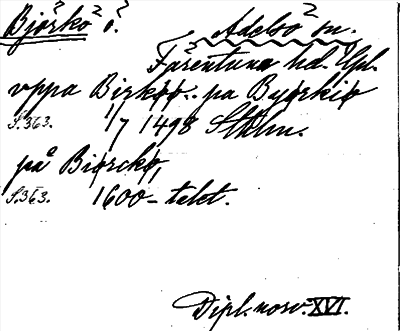 Björkö ö. Adelsö sn.
Färentuna hd. Upl.
vppa Birkøø. pa Byørkiø
S.363. 1/7 1498 Sthlm.
på Biørckø,
S.363. 1600-talet.
Dipl. norv. XVI.